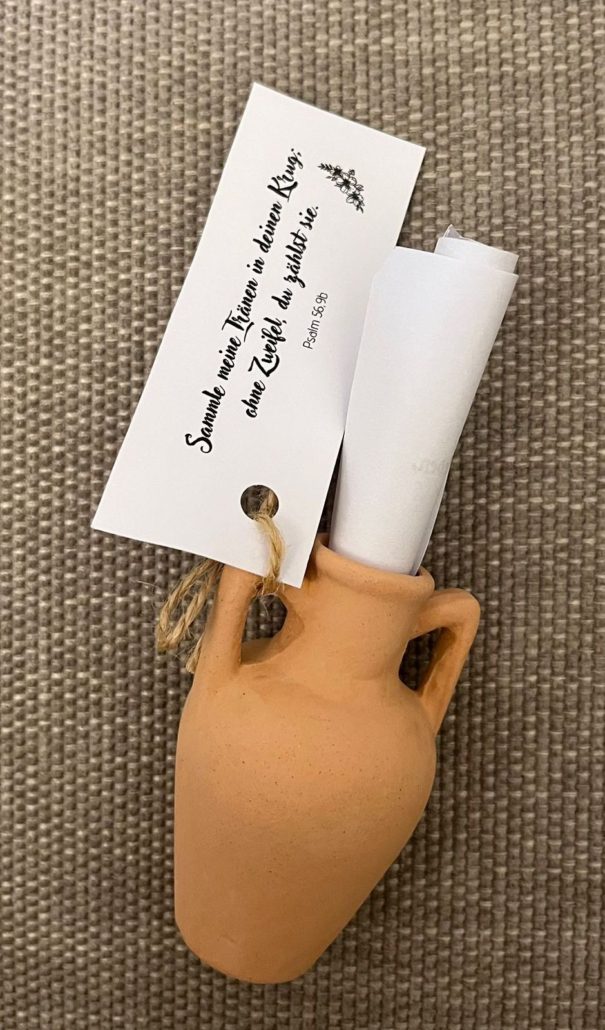 Sammle meine Tränen in deinen Krug;
ohne Zweifel, du zählst sie.
Psalm 56,9b